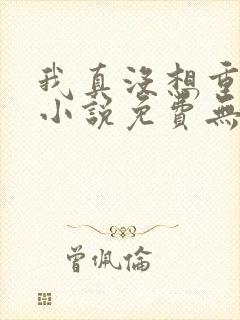 我真没想重
小說免費無
曾佩倫